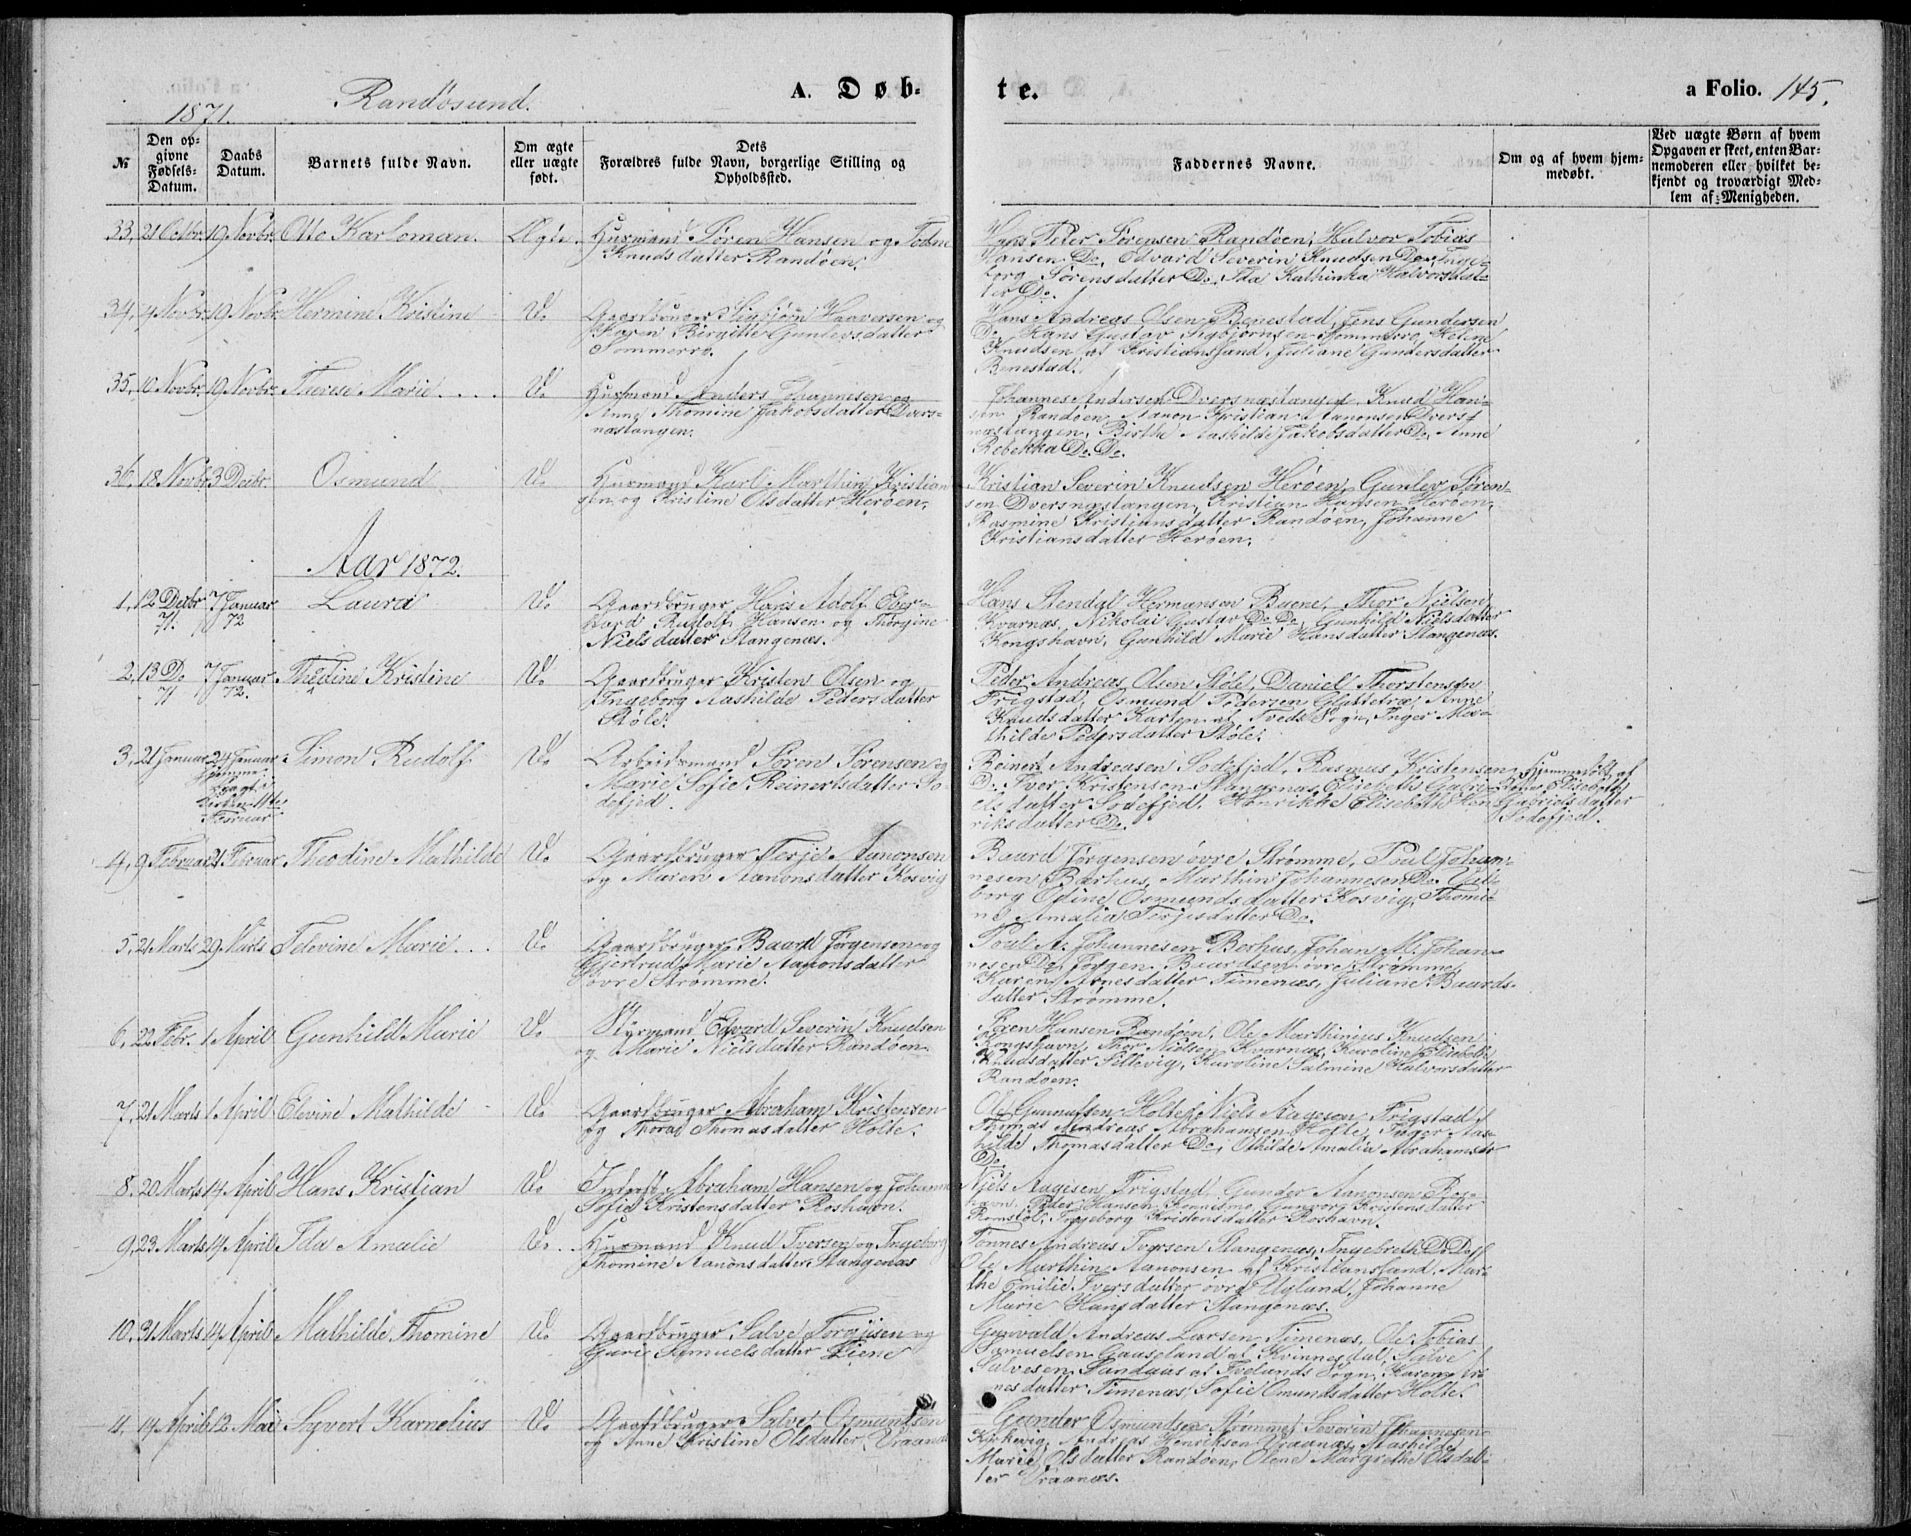 1871. Randøsund. A. Døb-
te. a Folio. 145.
№ Den opgivne Fødsels-Datum. Daabs Datum. Barnets fulde Navn. Om ægte eller uægte født. Dets Forældres fulde Navn, borgerlige Stilling og Opholdssted.
Faddernes Navne. Om og af hvem hjemmedøbt. Ved uægte Børn af hvem Opgaven er skeet, enten Barnemoderen eller hvilket bekjendt og troværdigt Medlem af Menigheden.
33, 21 Octbr. 19 Novbr. Otto Karloman. Ægte. Husmand Sören Hansen og
Knudsdatter Randøen.
Hans Peter Sørensen Randøen, Halvor Tobias
Hansen Do, Edvard Severin Knudsen Do, Inge-
borg Sørensdatter Do, Ida Kathinka Halvorsdat-
ter Do.
34, 4 Novbr. 19 Novbr. Hermine Kristine Do Gaardbruger Sigbjörn Haaversen og
Karen Birgitte Gunlersdatter
Sommerro.
Hans Andreas Olsen Benestad, Jens Gundersen
Do, Hans Gustav Sigbjørnsen Sommerro, Helene
Knudsen af Kristianssand, Juliane Gundersdatter
Benestad.
35, 10 Novbr. 19 Novbr. Therese Marie Do Husmand Anders Johannesen og
Anne Thomine Jakobsdatter Dvers-
næstangen.
Johannes Andersen Dversnæstangen, Knud Han-
sen Randøen, Aanon Kristian Aanonsen Dvers-
næstangen, Birthe Mathilde Jakobsdatter Do, Anne
Rebekka Do. Do.
36, 18 Novbr. 3 Decbr. Osmund Do Husmand Karl Marthin Kristian-
sen og Kristine Olsdatter Herøen.
Kristian Severin Knudsen Herøen, Gunlev Søren-
sen Dversnæstangen, Kristian Hansen Herøen,
Rasmine Kristiansdatter Randøen, Johanne
Kristiansdatter Herøen.
Aar 1872.
1, 12 Decbr 71. 7 Januar 72 Laura Do Gaardbruger Hans Adolf Eber-
hard Rudolf Hansen og Thorgine
Nielsdatter Stangenæs.
Hans Stendal Hermansen Buene, Thor Nielsen
Kvarnæs, Nikolai Gustav Do Do, Gunhild Nielsdatter
Kongshavn, Gunhild Marie Hansdatter Stangenæs.
2, 13 Do 71 7 Januar 72. Thedine Kristine Do Gaardbruger Kristen Olsen og
Ingeborg Mathilde Pedersdatter
Støle.
Peder Andreas Olsen Støle, Daniel Thorstensen
Frigstad, Osmund Pedersen Glattetræ, Anne
Knudsdatter Karten af Tveds Sogn, Inger Ma-
thilde Pedersdatter Støle.
3, 21 Januar 24 Januar hjemme Simon Rudolf Do Arbeidsmand Søren Sørensen og
Marie Sofie Reinertsdatter So-
defjed.
Reinert Andreasen Sodefjed, Rasmus Kristensen
Do, Iver Kristensen Stangenæs, Elisabeth Gabri-
elsdatter Sodefjed, Henrikke Elisabeth Hen-
riksdatter Do.
Hjemmedöbt af
Elisabeth
Gabrielsdatter
Sodefjed.
4, 9 Februar 21 Februar Theodine Mathilde Do Gaardbruger Terje Aanonsen
og Maren Aanonsdatter Kosvig
Baard Jørgensen övre Strömme, Poul Johan-
nesen Bærhus, Marthin Johannesen Do, Vil-
borg Odine Osmundsdatter Kosvig, Thomi-
ne Amalia Terjesdatter Do.
5, 21 Marts 29 Marts Tolevine Marie Do Gaardbruger Baard Jørgensen og
Gjertrud Marie Aanonsdatter
övre Strömme.
Poul A. Johannesen Borhus, Johan M. Johan-
nesen Do, Jørgen Baardsen övre Strömme,
Karen Arnesdatter Timenæs, Juliane Baards-
datter Strømme.
6, 22 Febr. 1 April Gunhild Marie Do Styrmand Edvard Severin Knudsen
og Marie Nielsdatter Randøen.
Søren Hansen Randøen, Ole Marthinius Knudsen
Kongshavn, Thor Nielsen Kvarnæs, Karoline Elisabeth
Knudsdatter Sillevig, Karoline Salmine Halvorsdatter
Randøen.
7, 21 Marts 1 April Elevine Mathilde Do Gaardbruger Abraham Kristensen
og Thorad Thomasdatter Holte.
Ole Gunnufsen Holte, Niels Aagesen Frigstad,
Thomas Andreas Abrahamsen Holte, Inger Mat-
hilde Thomasdatter Do, Othilde Amalia Abrahamsdr
Do
8. 20 Marts 14 April Hans Kristian Do Inderst Abraham Hansen og Johanne
Sofie Kristensdatter Roshavn.
Niels Aagesen Frigstad, Gunder Aanonsen Ros-
havn, Peder Hansen, Gunvorg Kristensdatter
Romstöl, Ingeborg Kristensdatter Roshavn.
9, 23 Marts 14 April Ida Amalie Do Husmand Knud Iversen og Ingeborg
Thomine Aanonsdatter Stangenæs
Tönnes Andreas Iversen Stangenæs, Ingebreth Do Do,
Ole Marthin Aanonsen af Kristianssand, Mar-
the Emilie Iversdatter övre Ugland, Johanne
Marie Hansdatter Stangenæs.
10. 31 Marts 14 April Mathilde Thomine Do Gaardbruger Salve Torgjusen og
Guri Samuelsdatter Fiene
Gunvald Andreas Larsen Timenæs, Ole Tobias
Samuelsen Gauseland af Kvinnesdal, Salve
Salvesen Sandaas af Tvelands Sogn, Karen Ar-
nesdatter Timenæs, Sofie Omundsdatter Holte.
11, 14 April 12 Mai Syvert Karnelius Do Gaardbruger Salve Osmundsen
og Anne Kristine Olsdatter Vraanæs
Gunder Osmundsen Strømme, Severin Johannesen
Kirkevig, Andreas Henriksen Vraanæs, Mathilde
Marie Olsdatter Randøen, Olene Margrethe Olsdat-
ter Vraanæs.